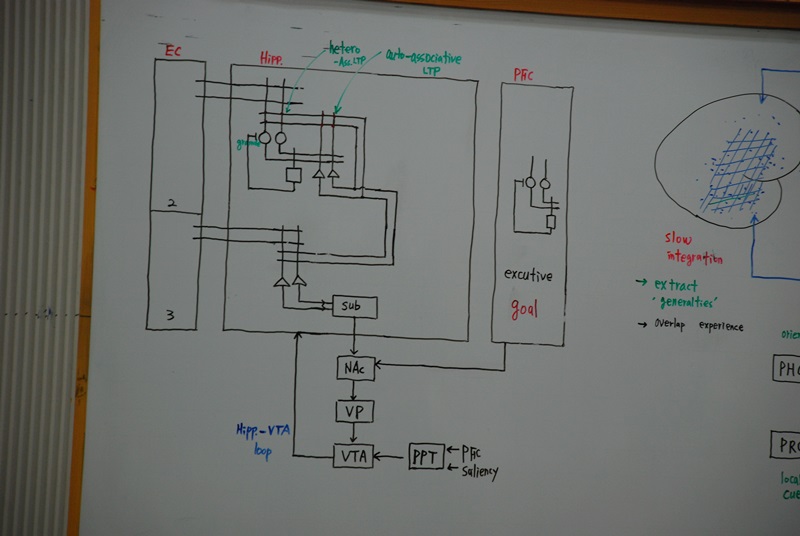 EC
Hipp.
hetero
-Ass. LTP
auto-associative
LTP
PFC
granule
2
3
sub
excutive
goal
NAc
VP
VTA
PPT
PFC
saliency
Hipp.-VTA
loop
slow
integration
→ extract
"generalties"
→ overlap experience